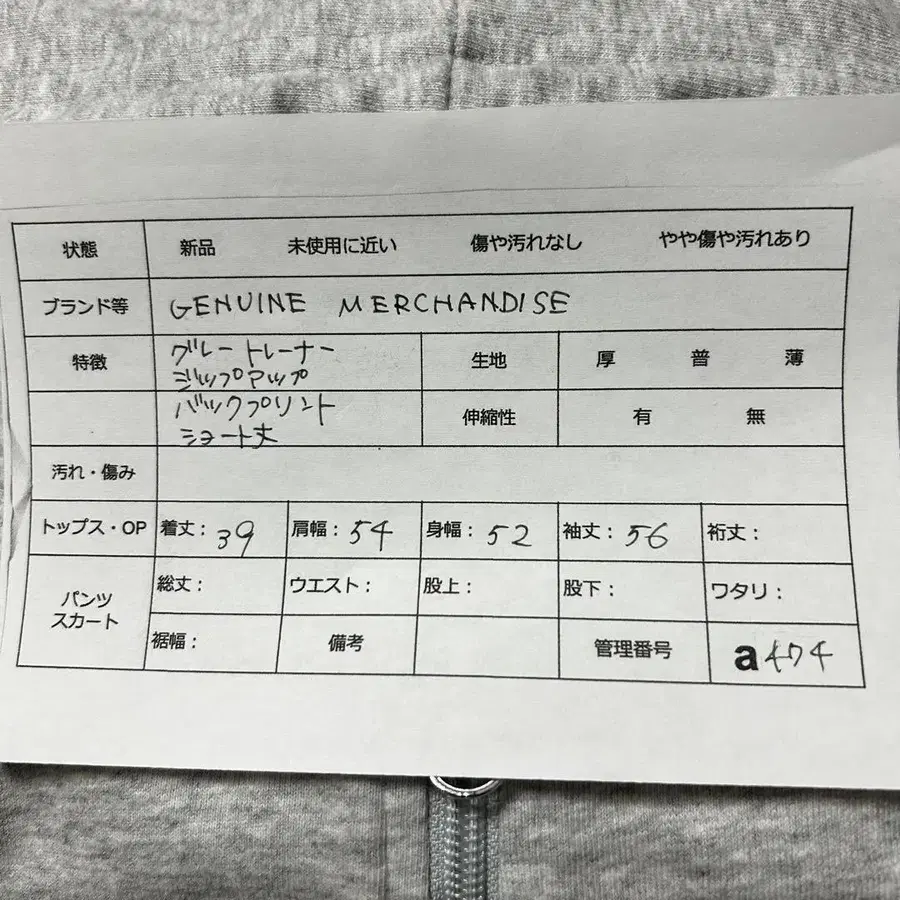 状態 新品 未使用に近い 傷や汚れなし やや傷や汚れあり
ブランド等 GENUINE MERCHANDISE
特徴 グレートレーナー 生地 厚 普 薄
ジップアップ
バックプリント 伸縮性 有 無
ショート丈
汚れ・傷み
トップス・OP 着丈: 39 肩幅: 54 身幅: 52 袖丈: 56 裄丈:
パンツ 総丈: ウエスト: 股上: 股下: ワタリ:
スカート
裾幅: 備考 管理番号 a474